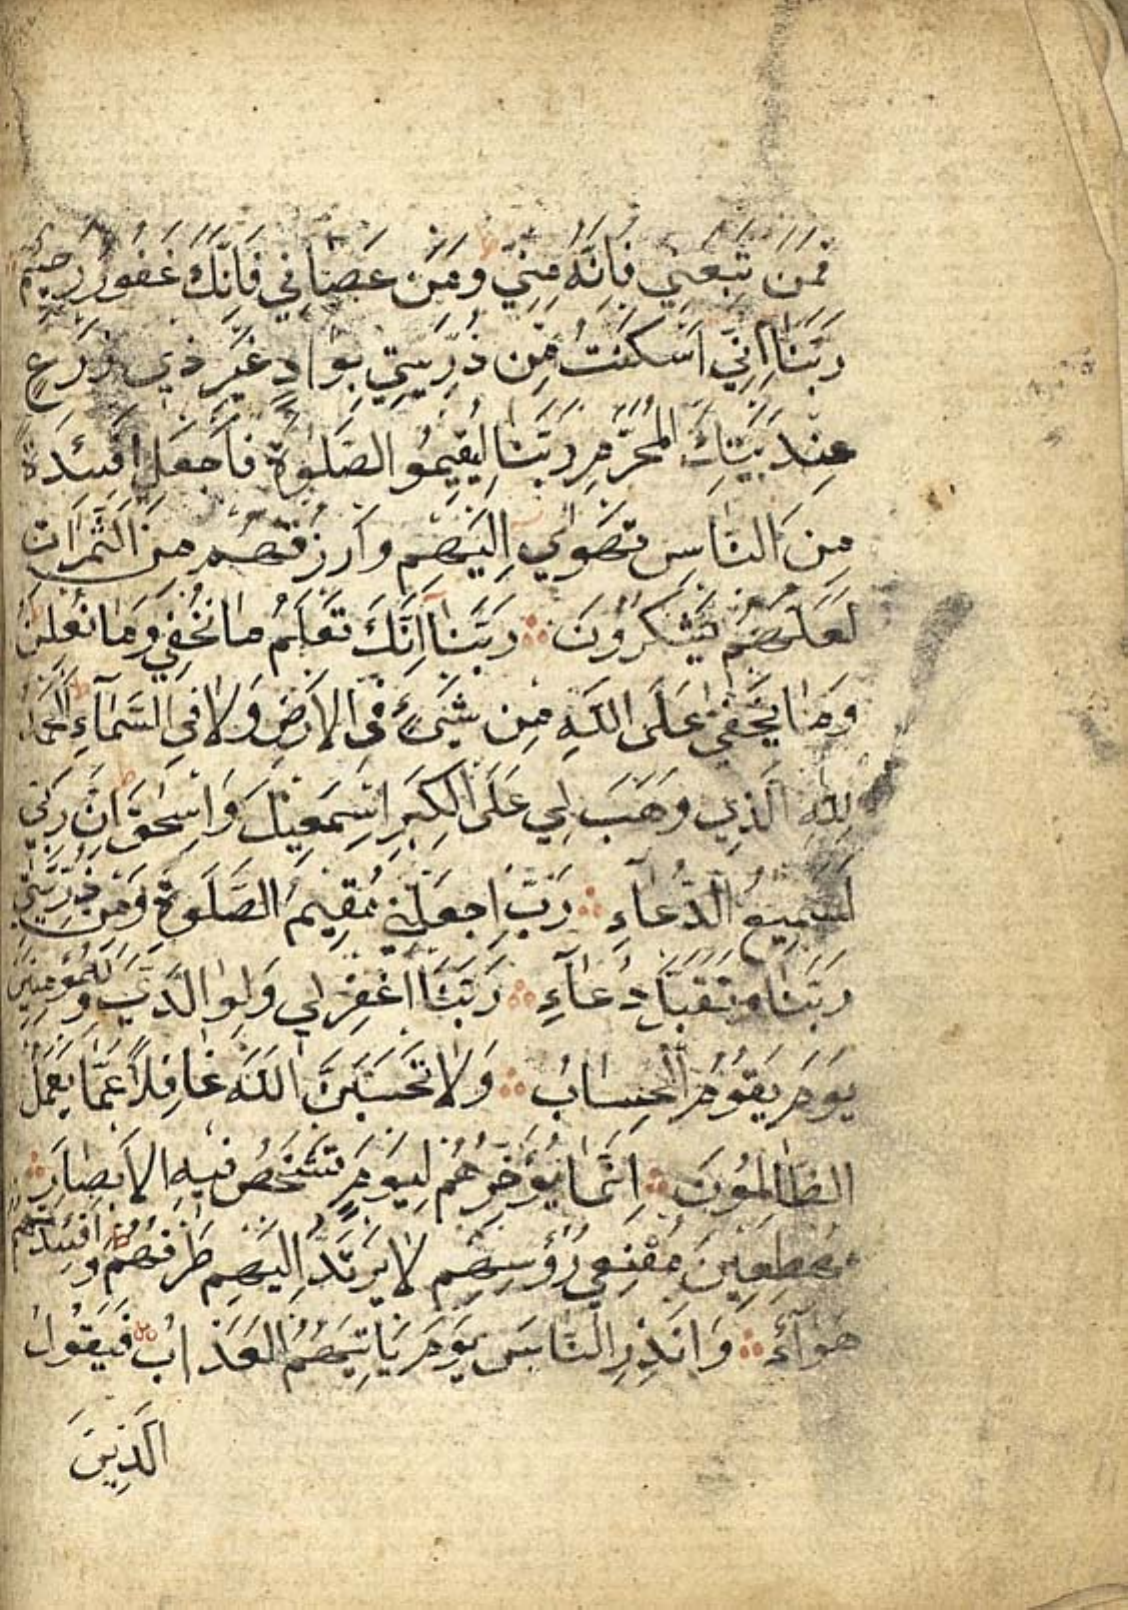 فَمَنْ تَبِعَنِي فَإِنَّهُ مِنِّي وَمَنْ عَصَانِي فَإِنَّكَ غَفُورٌ رَحِيمٌ
رَبَّنَا إِنِّي أَسْكَنْتُ مِنْ ذُرِّيَّتِي بِوَادٍ غَيْرِ ذِي زَرْعٍ
عِنْدَ بَيْتِكَ الْمُحَرَّمِ رَبَّنَا لِيُقِيمُوا الصَّلٰوةَ فَاجْعَلْ أَفْئِدَةً
مِنَ النَّاسِ تَهْوٰي إِلَيْهِمْ وَارْزُقْهُمْ مِنَ الثَّمَرَاتِ
لَعَلَّهُمْ يَشْكُرُونَ ۞ رَبَّنَا إِنَّكَ تَعْلَمُ مَا نُخْفِي وَمَا نُعْلِنُ
وَمَا يَخْفٰى عَلَى اللّٰهِ مِنْ شَيْءٍ فِي الْأَرْضِ وَلَا فِي السَّمَاءِ الْحَمْدُ
لِلّٰهِ الَّذِي وَهَبَ لِي عَلَى الْكِبَرِ إِسْمٰعِيلَ وَإِسْحٰقَ إِنَّ رَبِّي
لَسَمِيعُ الدُّعَاءِ ۞ رَبِّ اجْعَلْنِي مُقِيمَ الصَّلَوةِ وَمِنْ ذُرِّيَّتِي
رَبَّنَا وَتَقَبَّلْ دُعَاءِ ۞ رَبَّنَا اغْفِرْ لِي وَلِوَالِدَيَّ وَلِلْمُؤْمِنِينَ
يَوْمَ يَقُومُ الْحِسَابُ ۞ وَلَا تَحْسَبَنَّ اللّٰهَ غَافِلًا عَمَّا يَعْمَلُ
الظَّالِمُونَ ۞ إِنَّمَا يُؤَخِّرُهُمْ لِيَوْمٍ تَشْخَصُ فِيهِ الْأَبْصَارُ ۞
مُهْطِعِينَ مُقْنِعِي رُؤُسِهِمْ لَا يَرْتَدُّ إِلَيْهِمْ طَرْفُهُمْ وَأَفْئِدَتُهُمْ
هَوَاءٌ ۞ وَأَنْذِرِ النَّاسَ يَوْمَ يَأْتِيهِمُ الْعَذَابُ فَيَقُولُ
الَّذِينَ